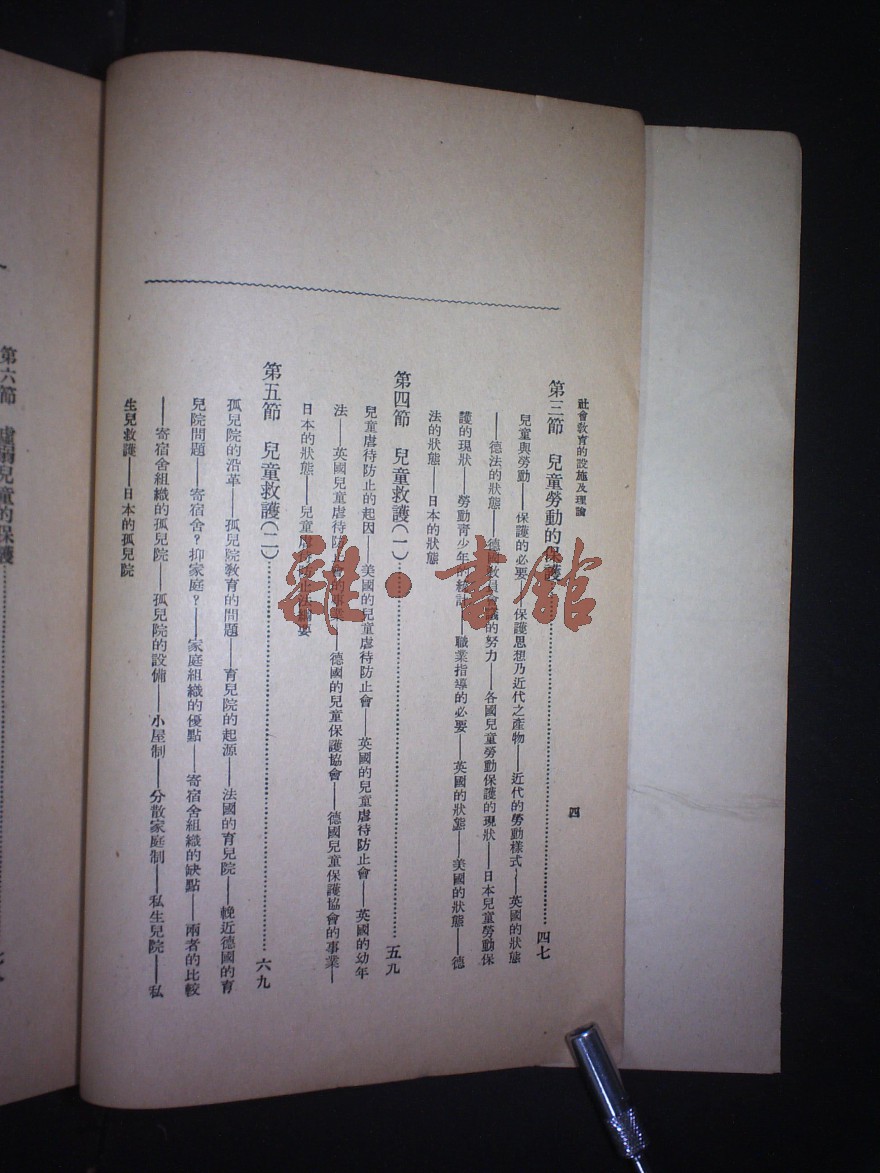 社會教育的設施及理論
四
第三節 兒童勞動的保護 四七
兒童與勞動——保護的必要——保護思想乃近代之產物——近代的勞動樣式——英國的狀態
——德法的狀態——德國教員會議的努力——各國兒童勞動保護的現狀——日本兒童勞動保
護的現狀——勞動靑少年的統計——職業指導的必要——英國的狀態——美國的狀態——德
法的狀態——日本的狀態
第四節 兒童救護(一) 五九
兒童虐待防止的起因——美國的兒童虐待防止會——英國的兒童虐待防止會——英國的幼年
法——英國兒童虐待防止會的事業——德國的兒童保護協會——德國兒童保護協會的事業—
日本的狀態——兒童虐待防止法綱要
第五節 兒童救護(二) 六九
孤兒院的沿革——孤兒院敎育的問題——育兒院的起源——法國的育兒院——輓近德國的育
兒院問題——寄宿舍?抑家庭?——家庭組織的優點——寄宿舍組織的缺點——兩者的比較
——寄宿舍組織的孤兒院——孤兒院的設備——小屋制——分散家庭制——私生兒院——私
生兒救護——日本的孤兒院
第六節 虛弱兒童的保護
雜·書館